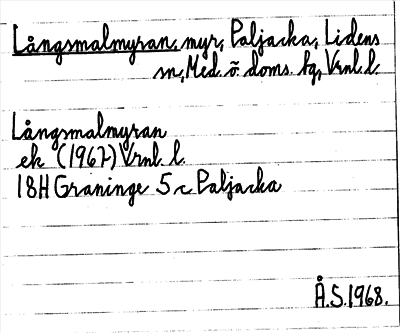 Långsmalmyran, myr, Paljacka, Lidens
sn, Med. ö. doms. tg, Vrnl. l.
Långsmalmyran
ek (1967) Vrnl. l.
18H Graninge 5 c Paljacka
Å.S. 1968.